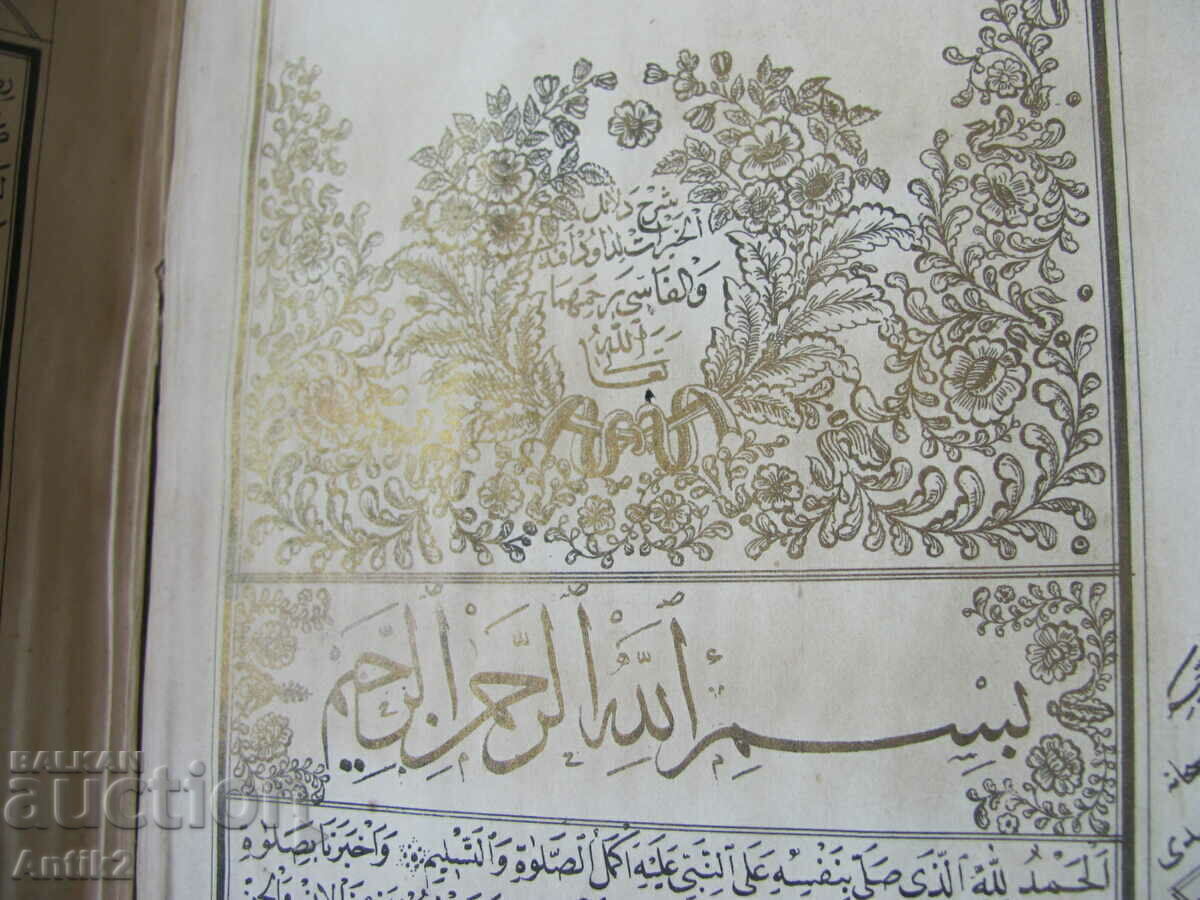 شرح دلائل
الخيرات للداود افندى
والفاسى يرحمهما
الله
تعالى
بِسْمِ اللّٰهِ الرَّحْمٰنِ الرَّحِيمِ
اَلْحَمْدُ لِلّٰهِ الَّذِى صَلَّى بِنَفْسِهِ عَلَى النَّبِىِّ عَلَيْهِ اَكْمَلُ الصَّلٰوةِ وَالتَّسْلِيمِ وَاَخْبَرَنَا بِصَلٰوةِ
BALKAN
auction
Antik2